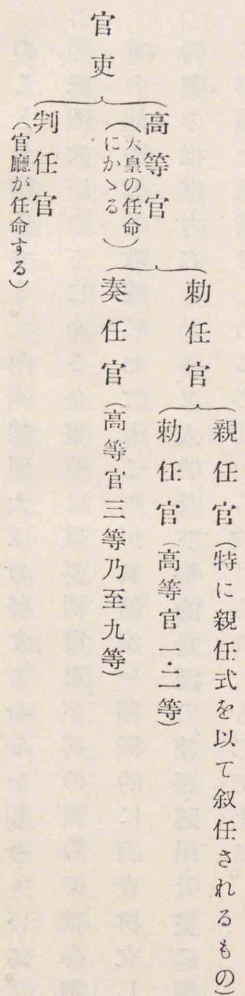 官吏
高等官
(天皇の任命にかゝる)
勅任官
親任官(特に親任式を以て叙任されるもの)
勅任官(高等官一・二等)
奏任官(高等官三等乃至九等)
判任官
(官廳が任命する)